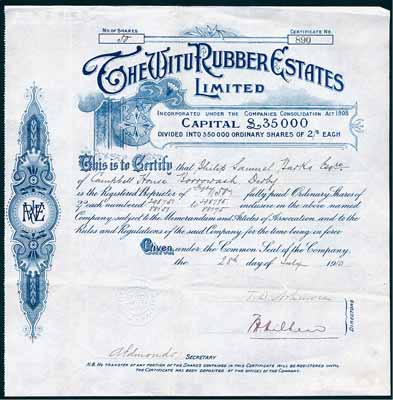 No OF SHARES
CERTIFICATE No.
50
890
THE WITU RUBBER ESTATES
LIMITED
INCORPORATED UNDER THE COMPANIES CONSOLIDATION ACT 1908
CAPITAL £35000
DIVIDED INTO 350000 ORDINARY SHARES OF 2/- EACH
This is to Certify that Philip Samuel Parks Esqre
of Campbell House Borrowash Derby
is the Registered Proprietor of Fifty fully paid Ordinary Shares of
2/- each numbered to inclusive in the above named
Company, subject to the Memorandum and Articles of Association and to the
Rules and Regulations of the said Company for the time being in force
Given under the Common Seal of the Company
the 28th day of July 1910
DIRECTORS
SECRETARY
N.B. NO TRANSFER OF ANY PORTION OF THE SHARES COMPRISED IN THIS CERTIFICATE WILL BE REGISTERED UNTIL
THE CERTIFICATE HAS BEEN DEPOSITED AT THE OFFICES OF THE COMPANY.